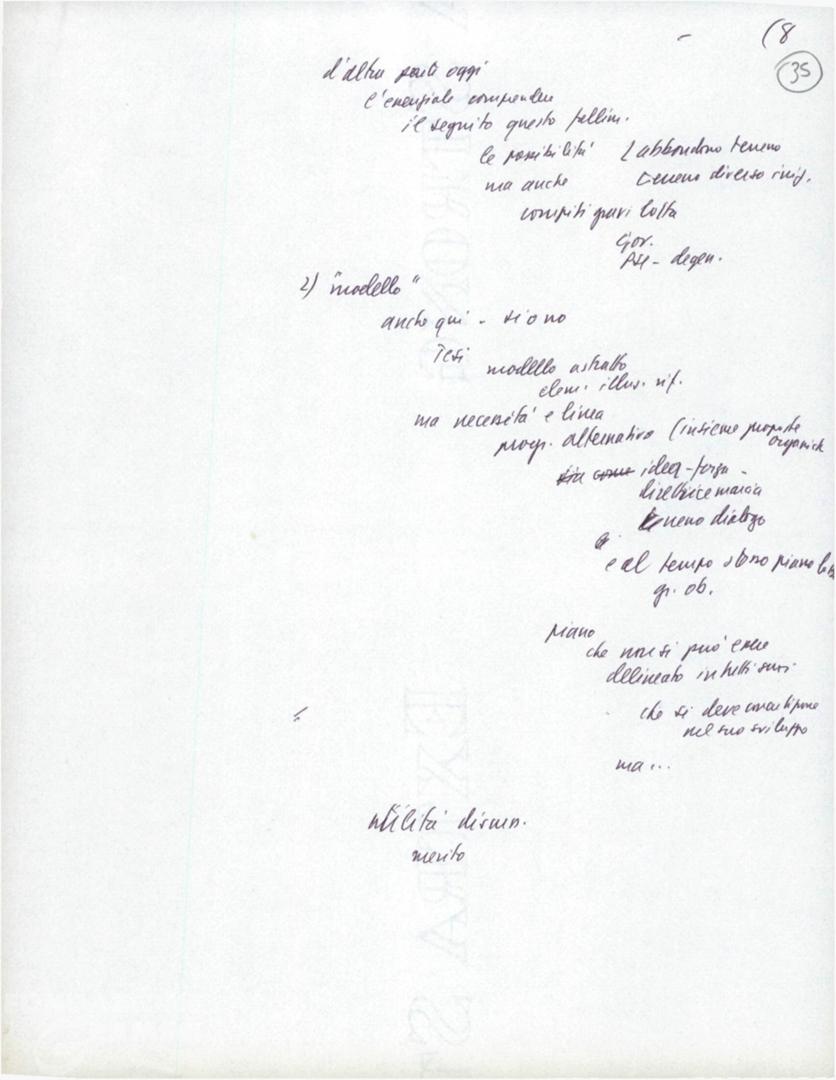 (8
35
d'altra parte oggi
l'essenziale comprendere
il seguito questo fallim.
le possibilità l'abbandono terreno
ma anche terreno diverso
compiti gravi lotta
Gov.
PSI - degen.
2) "modello"
anche qui - sì o no
Tesi
modello astratto
elem. illus. rif.
ma necessità e linea
progr. alternativo (insieme proposte
organich
sia come idea-forza -
direttrice marcia
terreno dialogo
e al tempo stesso piano
gr. ob.
piano
che non si può essere
delineato in tutti suoi
che si deve
nel suo sviluppo
ma ...
utilità discuss.
merito